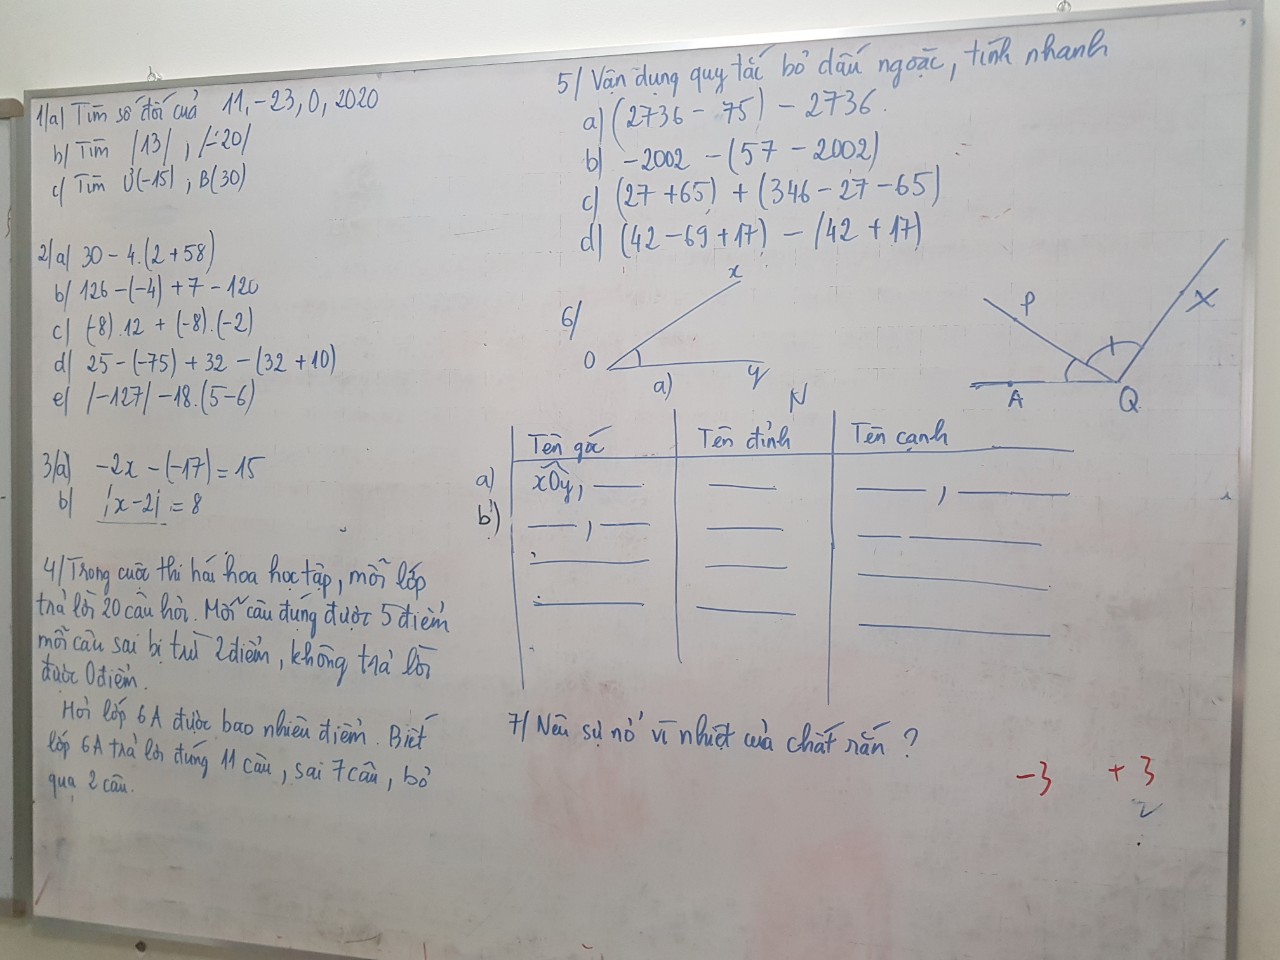 1/a/ Tìm số đối của 11, -23, 0, 2020
b/ Tìm |13| , |-20|
c/ Tìm Ư(-15) , B(30)
2/a/ 30 - 4.(2 + 58)
b/ 126 - (-4) + 7 - 120
c/ (-8).12 + (-8).(-2)
d/ 25 - (-75) + 32 - (32 + 10)
e/ |-127| - 18.(5-6)
3/a/ -2x - (-17) = 15
b/ |x - 2| = 8
4/ Trong cuộc thi hái hoa học tập, mỗi lớp
trả lời 20 câu hỏi. Mỗi câu đúng được 5 điểm
mỗi câu sai bị trừ 2 điểm, không trả lời
được 0 điểm.
Hỏi lớp 6A được bao nhiêu điểm. Biết
lớp 6A trả lời đúng 11 câu, sai 7 câu, bỏ
qua 2 câu.
5/ Vận dụng quy tắc bỏ dấu ngoặc, tính nhanh
a/ (2736 - 75) - 2736.
b/ -2002 - (57 - 2002)
c/ (27 + 65) + (346 - 27 - 65)
d/ (42 - 69 + 17) - (42 + 17)
6/
x
O
y
a)
N
P
X
A
Q
Tên góc Tên đỉnh Tên cạnh
a) xOy, ___ ___ ___ , ___
b) ___ , ___ ___ ___ ___
7/ Nêu sự nở vì nhiệt của chất rắn ?
-3 +3
2